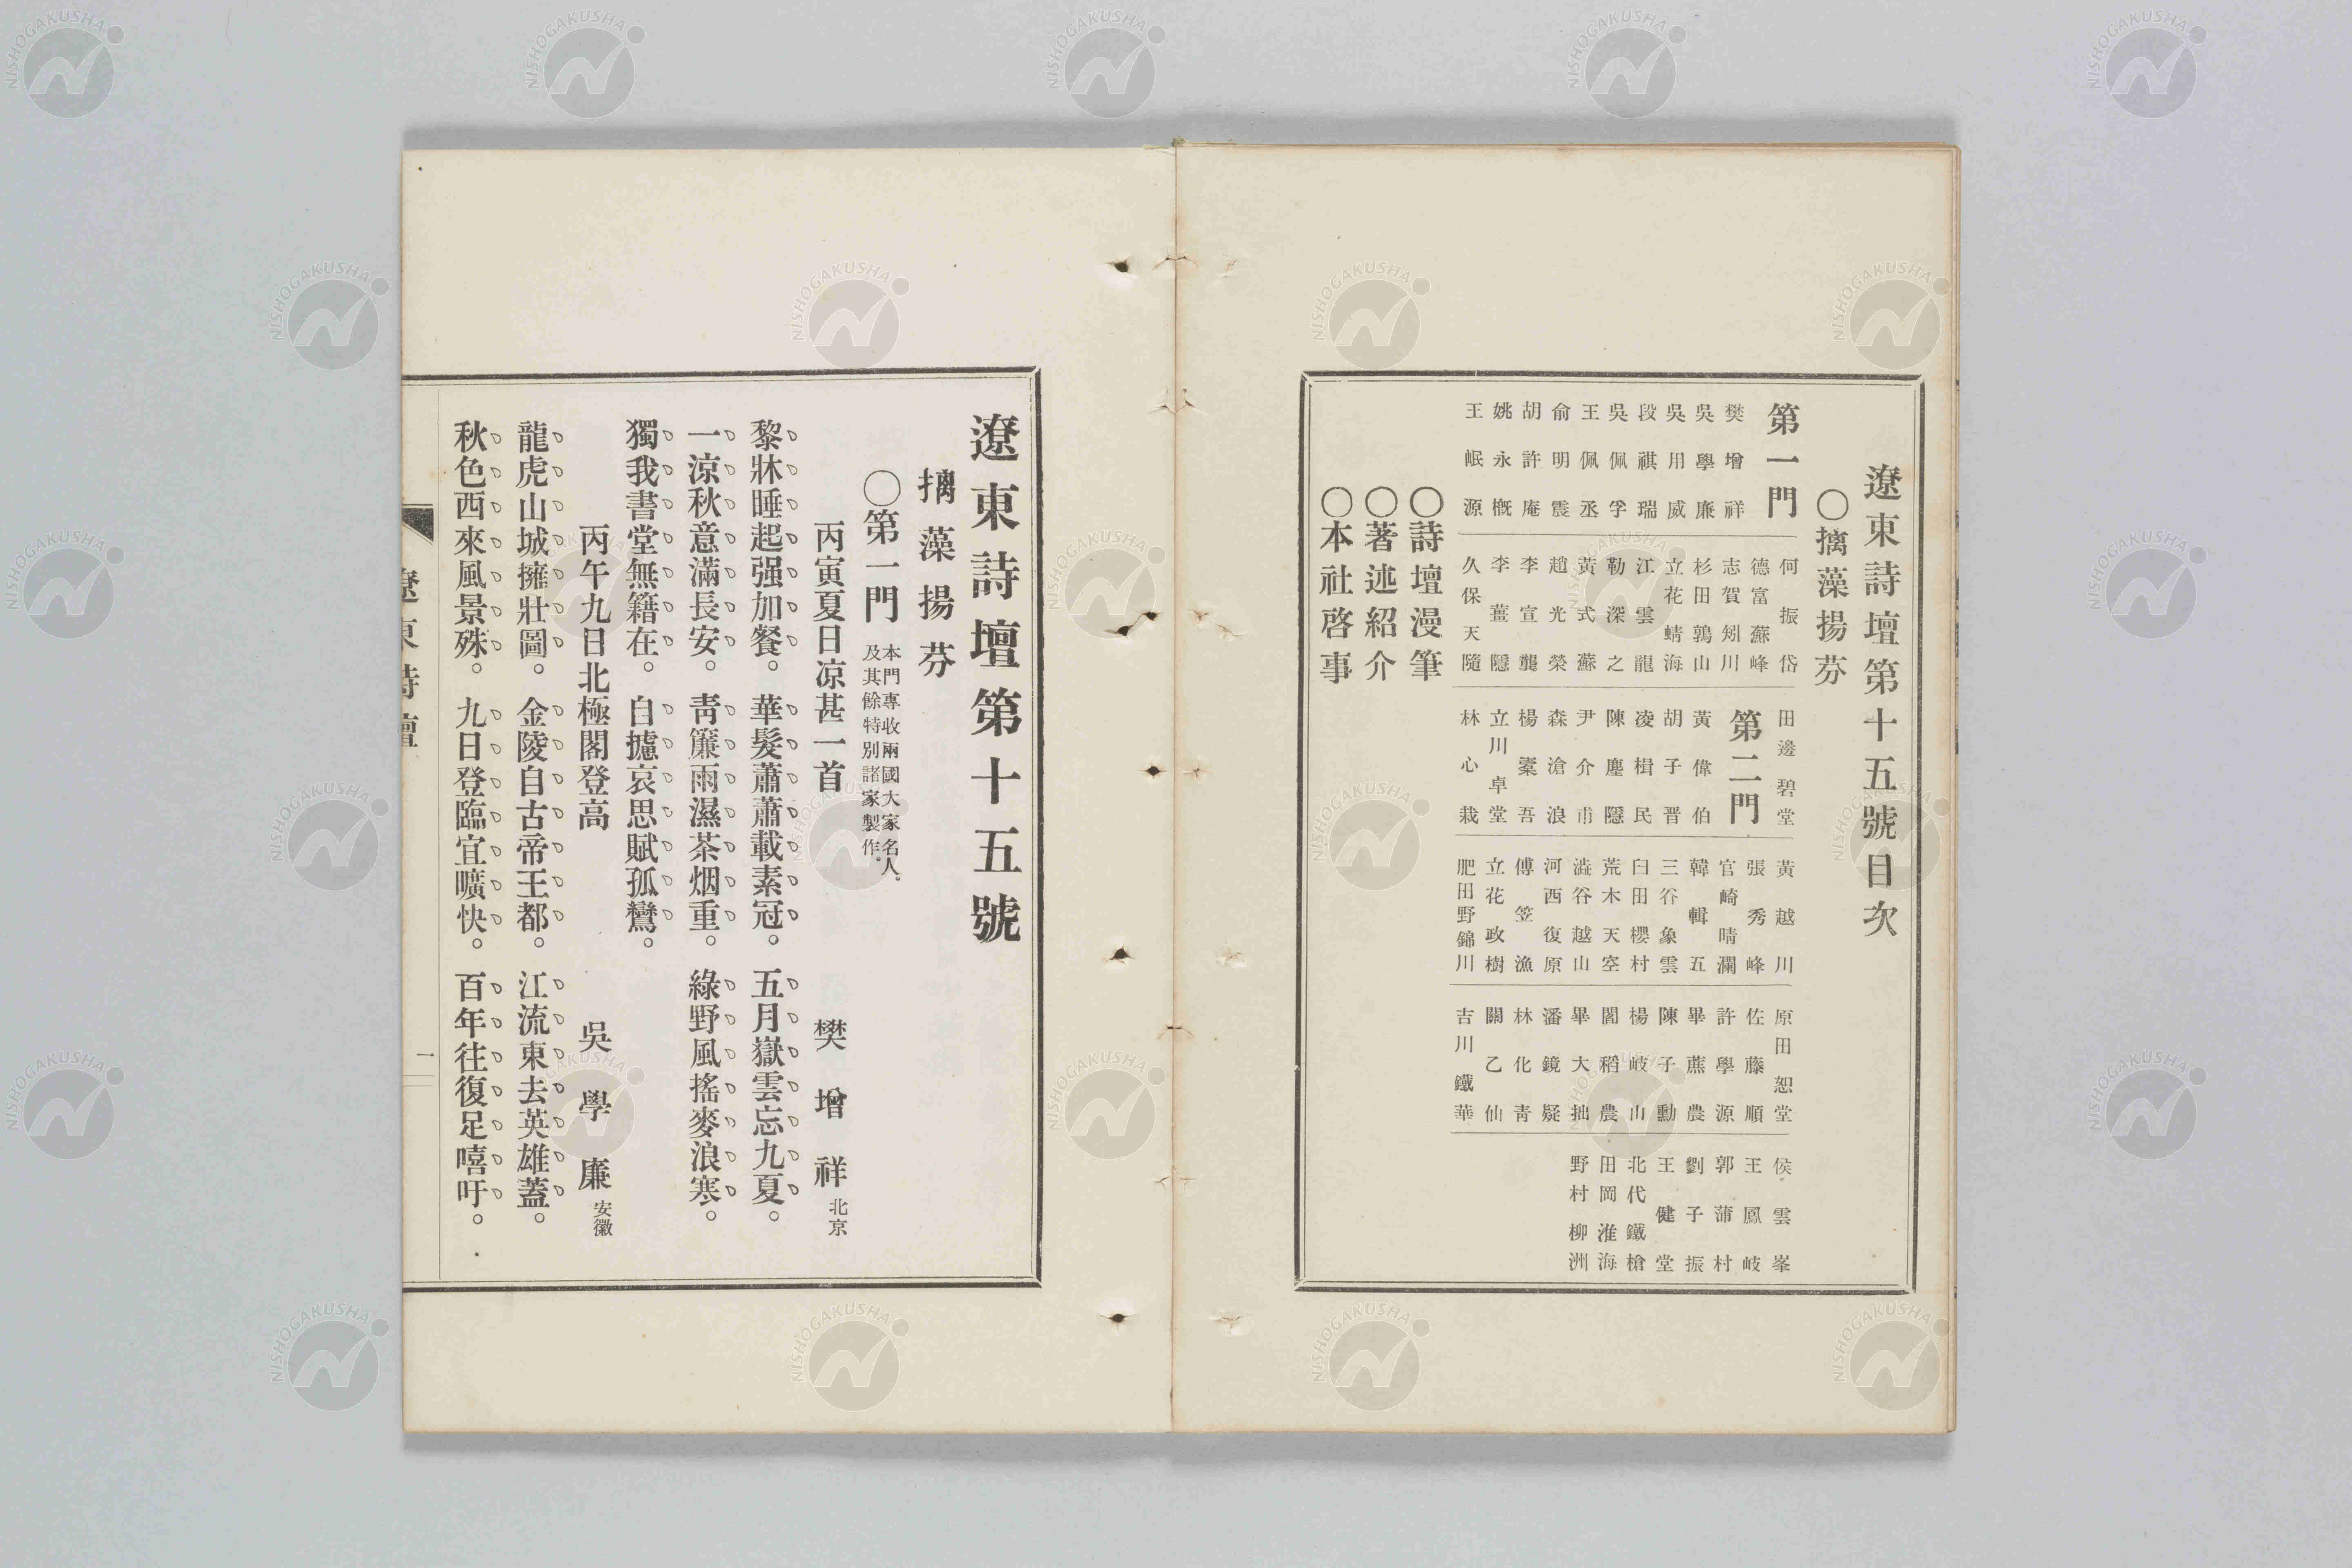 遼東詩壇第十五號目次
○摛藻揚芬
第一門
樊增祥
吳學廉
吳用威
段祺瑞
吳佩孚
王佩丞
俞明震
胡許庵
姚永概
王岷源
何振岱
德富蘇峰
志賀矧川
杉田鶉山
立花蜻海
江雲龍
勒深之
黃式蘇
趙光榮
李宣龔
李薑隱
久保天隨
田邊碧堂
第二門
黃偉伯
胡子晋
凌楫民
陳塵隱
尹介甫
森滄浪
楊橐吾
立川卓堂
林心栽
黃越川
張秀峰
官崎晴瀾
韓輯五
三谷象雲
臼田櫻村
荒木天空
澁谷越山
河西復原
傅笠漁
立花政樹
肥田野錦川
原田恕堂
佐藤順
許學源
畢蔗農
陳子勳
楊岐山
閻稻農
畢大拙
潘鏡疑
林化青
關乙仙
吉川鐵華
侯雲峯
王鳳岐
郭蒲村
劉子振
王健堂
北代鐵槍
田岡淮海
野村柳洲
○詩壇漫筆
○著述紹介
○本社啓事
遼東詩壇第十五號
摛藻揚芬
○第一門 本門專收兩國大家名人。
及其餘特別諸家製作。
丙寅夏日凉甚一首 樊增祥 北京
黎牀睡起强加餐。華髮蕭蕭載素冠。五月嶽雲忘九夏。
一凉秋意滿長安。靑簾雨濕茶烟重。綠野風搖麥浪寒。
獨我書堂無籍在。自攄哀思賦孤鸞。
丙午九日北極閣登高 吳學廉 安徽
龍虎山城擁壯圖。金陵自古帝王都。江流東去英雄蓋。
秋色西來風景殊。九日登臨宜曠快。百年往復足嘻吁。
遼東詩壇
一
NISHOGAKUSHA